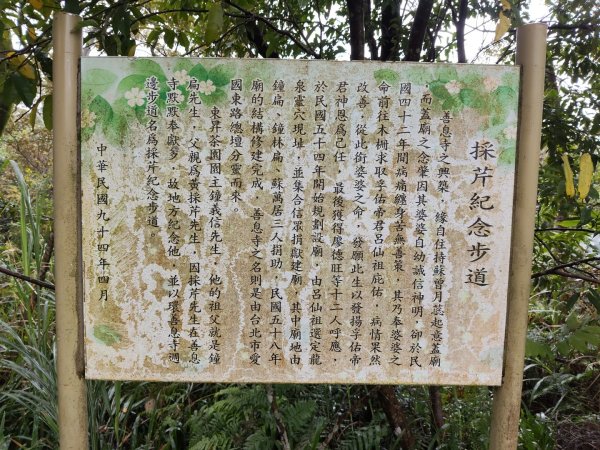 採芹紀念步道
善息寺之興築，緣自住持蘇曾月蕊起意蓋廟
，而蓋廟之念肇因其婆婆自幼誠信神明，卻於民
國四十二年間病痛纏身苦無善策，其乃奉婆婆之
命前往木柵求取孚佑帝君呂仙祖庇佑，病情果然
改善，從此銜婆婆之命，發願此生以發揚孚佑帝
君神恩為己任，最後獲得廖德旺等十二人呼應，
於民國五十四年開始規劃設廟，由呂仙祖選定龍
泉靈穴現址，並集合信眾捐獻建廟，其中廟地由
鐘扁、鐘林扁、蘇萬居三人捐助，民國五十八年
廟的結構修建完成，善息寺之名則是由台北市愛
國東路總壇分靈而來。
東昇茶園園主鐘義信先生，他的祖父就是鐘
扁先生，父親為黃採芹先生，因採芹先生在善息
寺默默奉獻多，故地方紀念他，並以環善息寺週
邊步道名為採芹紀念步道。
中華民國九十四年四月